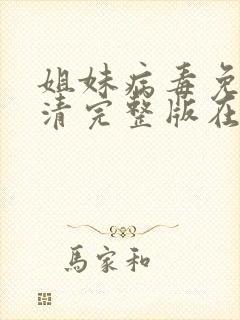 姐妹病毒免
清完整版在
馬家和